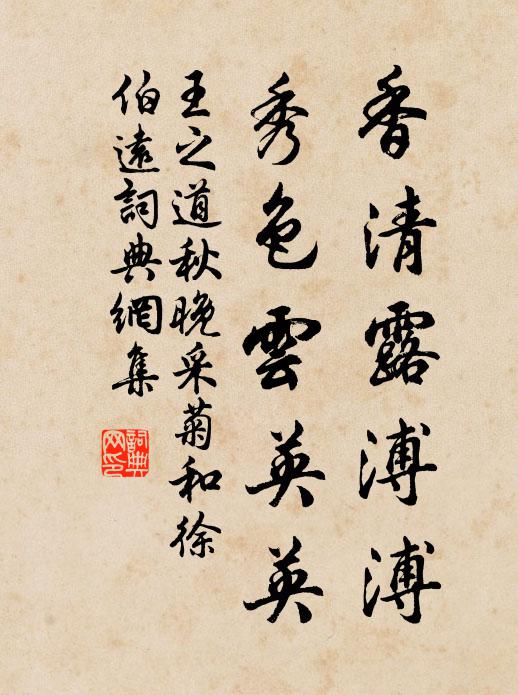 香清露溥溥
秀色雲英英
王之道秋晚采菊和徐
伯遠詞典網集
詞典网印